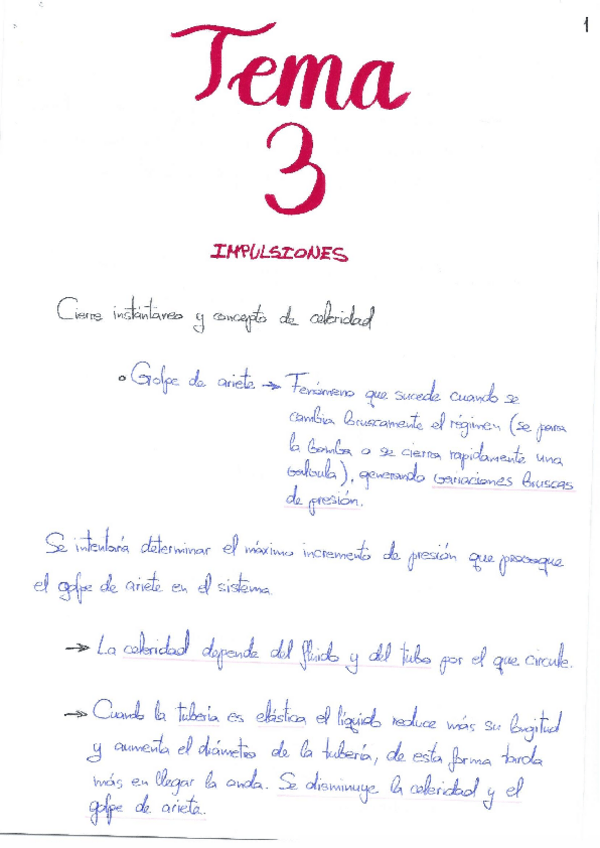 1
Tema
3
IMPULSIONES
Cierre instántáneo y concepto de celeridad
• Golpe de ariete → Fenómeno que sucede cuando se
cambia bruscamente el régimen (se para
la bomba o se cierra rapidamente una
válvula), generando variaciones bruscas
de presión.
Se intentará determinar el máximo incremento de presión que provoque
el golpe de ariete en el sistema
→ La celeridad depende del fluido y del tubo por el que circule.
→ Cuando la tubería es elástica el líquido reduce más su longitud
y aumenta el diámetro de la tubería, de esta forma tarda
más en llegar la onda. Se disminuye la celeridad y el
golpe de ariete.